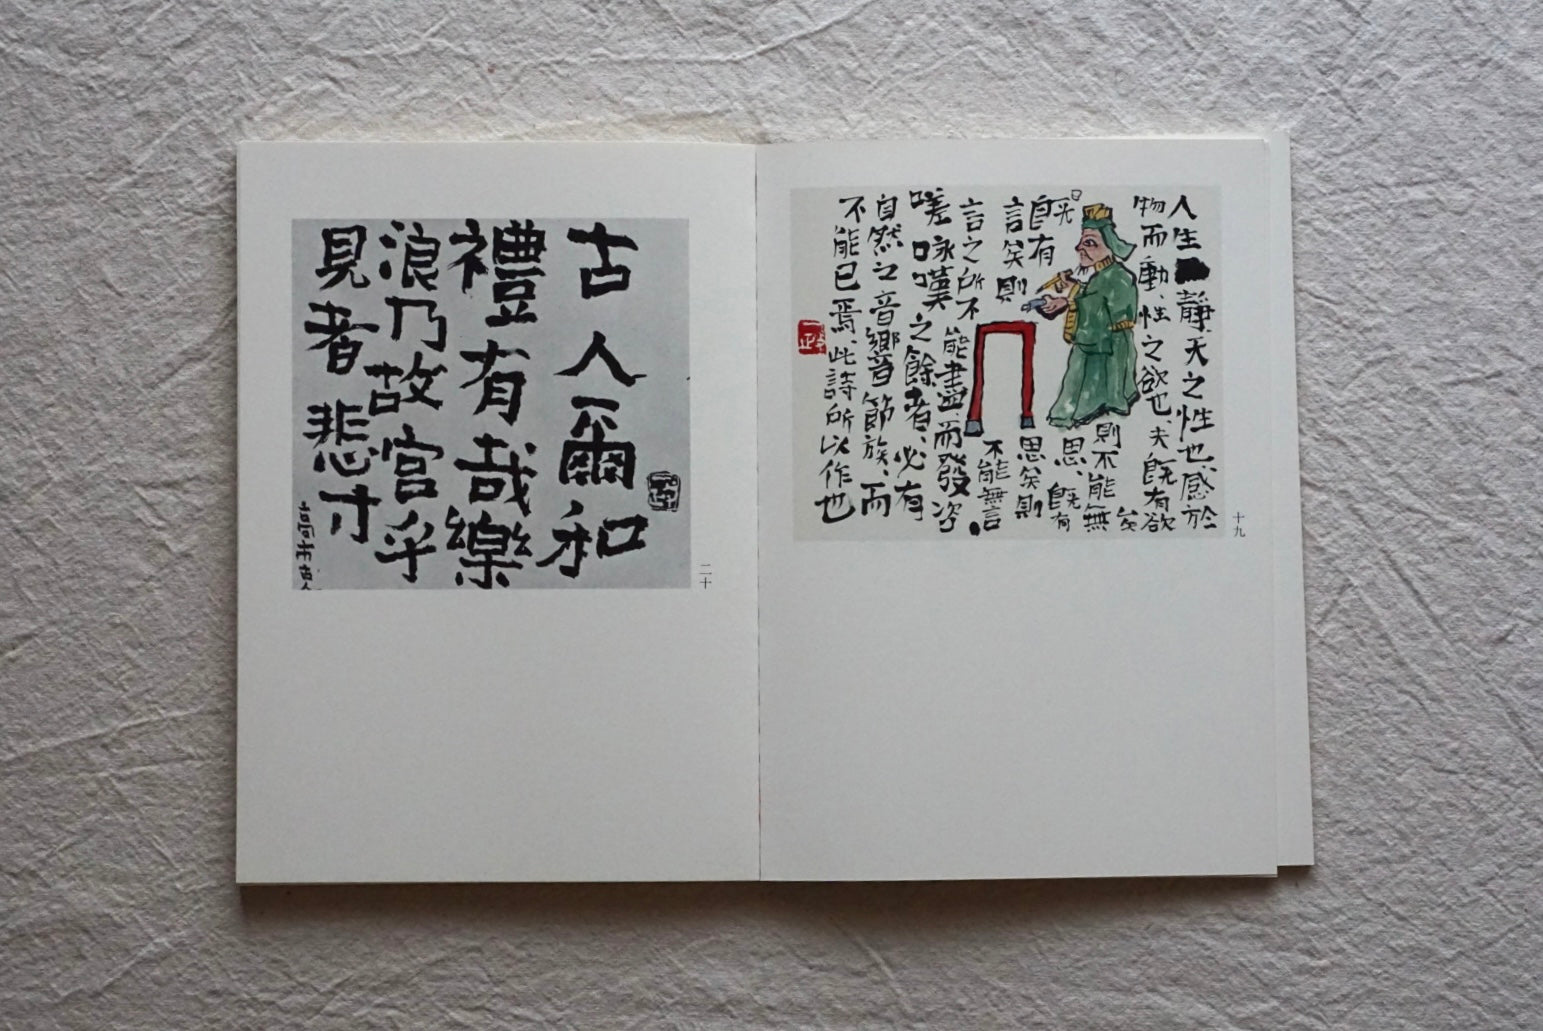 人生静、天之性也感於
物而動、性之欲也、夫既有欲
矣
則不能無
思、既有
思矣則
不能無言
既有
言矣則
言之所不能盡、而發咨
嗟咏嘆之餘者、必有
自然之音響節族、而
不能已焉、此詩所以作也
十九
古人爾和
禮有哉樂
浪乃故宮乎
見者悲寸
二十